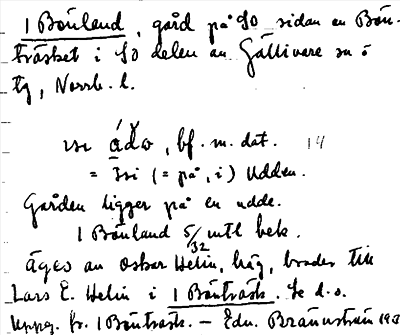 1 Bönland, gård på SO sidan av Bön-
träsket i SO delen av Gällivare sn ö
tg, Norrb. l.
ådə, bf. m. dat. 14
= (= på, i) Udden.
Gården ligger på en udde.
1 Bönland 5/32 mtl bek.
äges av Oskar Helin, häg, broder till
Lars E. Helin i 1 Bönträsk. Se d.o.
Uppg. fr. 1 Bönträsk. — Edv. Brännström